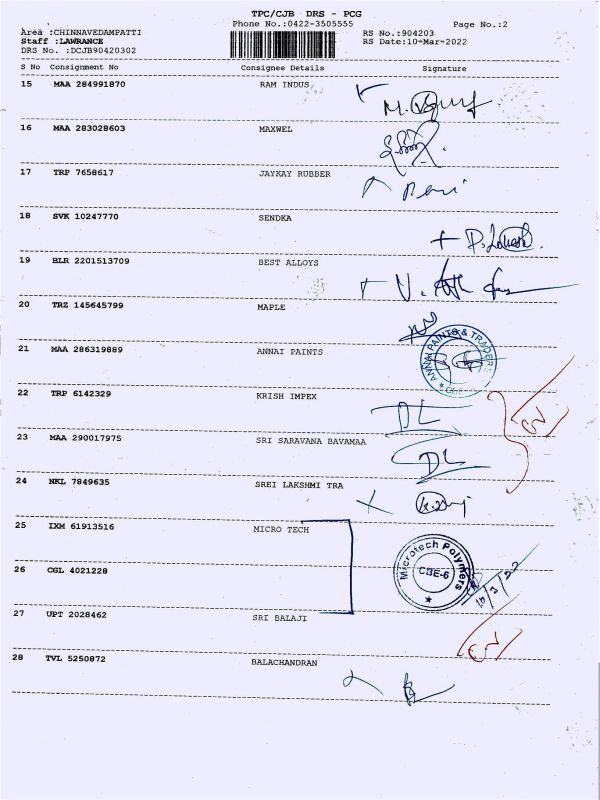 TPC/CJB DRS - PCG
Phone No.:0422-3505555
Page No.:2
Area :CHINNAVEDAMPATTI
RS No.:904203
Staff :LAWRANCE
RS Date:10-Mar-2022
DRS No. :DCJB90420302
S No Consignment No Consignee Details Signature
15 MAA 284991870 RAM INDUS
16 MAA 283028603 MAXWEL
17 TRP 7658617 JAYKAY RUBBER
Ravi
18 SVK 10247770 SENDKA
19 BLR 2201513709 BEST ALLOYS
20 TRZ 145645799 MAPLE
21 MAA 286319889 ANNAI PAINTS
ANNAI PAINTS & TRADERS
22 TRP 6142329 KRISH IMPEX
DL
23 MAA 290017975 SRI SARAVANA BAVAMAA
DL
24 NKL 7849635 SREI LAKSHMI TRA
25 IXM 61913516 MICRO TECH
Microtech Polymers
CBE-6
26 CGL 4021228
10/3/22
27 UPT 2028462 SRI BALAJI
28 TVL 5250872 BALACHANDRAN